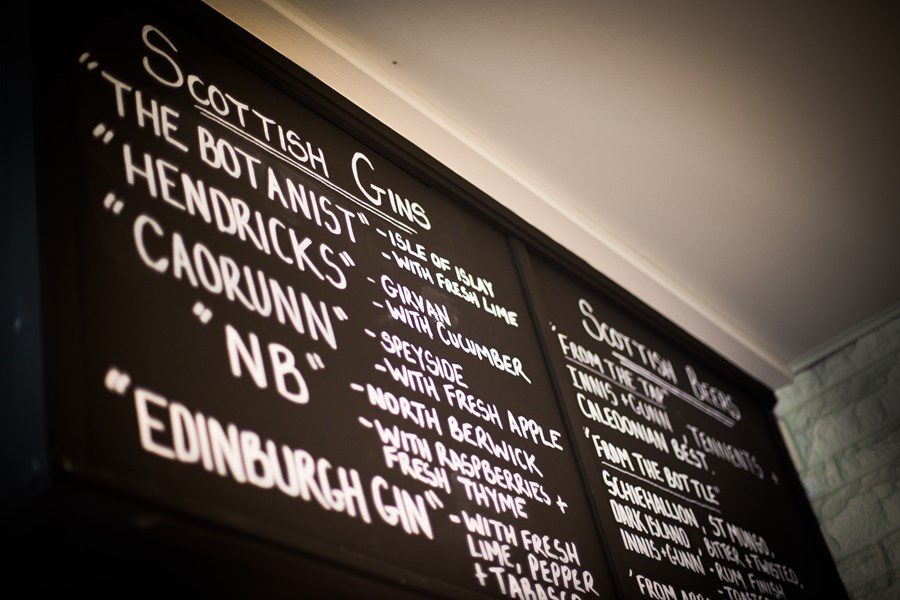 Scottish Gins
"THE BOTANIST" - ISLE OF ISLAY
- WITH FRESH LIME
"HENDRICKS" - GIRVAN
- WITH CUCUMBER
"CAORUNN" - SPEYSIDE
- WITH FRESH APPLE
"NB" - NORTH BERWICK
- WITH RASPBERRIES +
FRESH THYME
"EDINBURGH GIN" - WITH FRESH
LIME, PEPPER
+ TABASCO
Scottish Beers
"FROM THE TAP"
INNIS + GUNN, TENNENTS,
CALEDONIAN BEST.
"FROM THE BOTTLE"
SCHIEHALLION, ST MUNGO,
DARK ISLAND, BITTER + TWISTED,
INNIS + GUNN - RUM FINISH
- TOASTED
"FROM